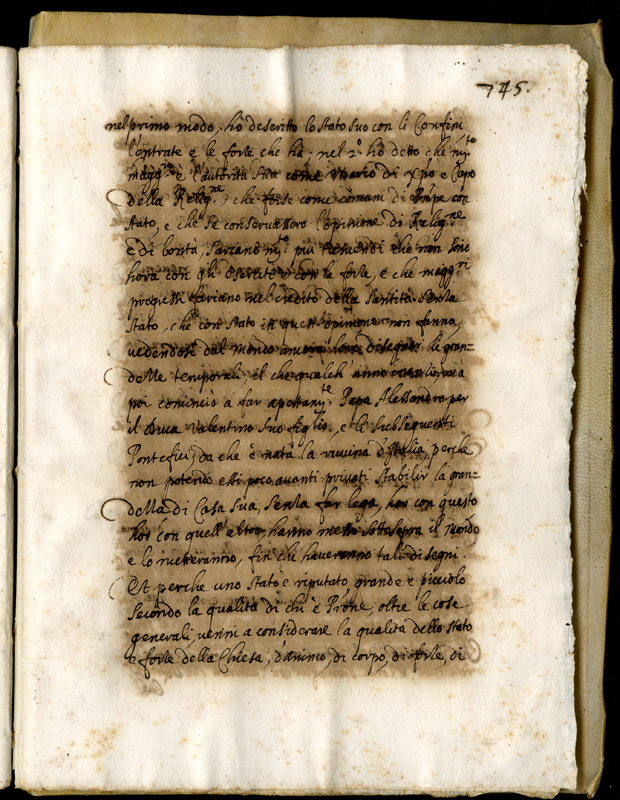 745.
nel primo modo, hò descritto lo stato suo con li Confini
l'entrate e le forze che hà; nel 2.º hò detto che m.to
magg.re è l'autorità sua come Vicario di Xpo e Capo
della Relig.ne, che forse come comani di Prñpe con
stato, e che se conservassero l'opinione di Relig.ne
e di bontà, sariano m.to più tremendi che non sono
hora con gli eserciti e con le forze, e che magg.ri
progressi fariano nel credito della santità senza
stato, che con stato in quest'opinione non fanno,
vedendosi dal mondo disegnar le gran=
dezze temporali, il che qualch'anno
poi cominciò a far apertam.te Papa Alessandro per
il Duca Valentino suo figlio, e li susseguenti
Pontefici, da che è nata la ruvina d'Italia, perche
non potendo essi poco avanti privati stabilir la gran=
dezza di Casa sua, senza far lega, hor con questo
hor con quell'altro, hanno messo sottosopra il mondo
e lo metteranno, fin che haveranno tali disegni.
Et perche uno stato è riputato grande e picciolo
secondo la qualità di chi è Prōne, oltre le cose
generali, verrò a considerare la qualità dello stato
e forze della Chiesa, d'animo, di corpo, di forze, di